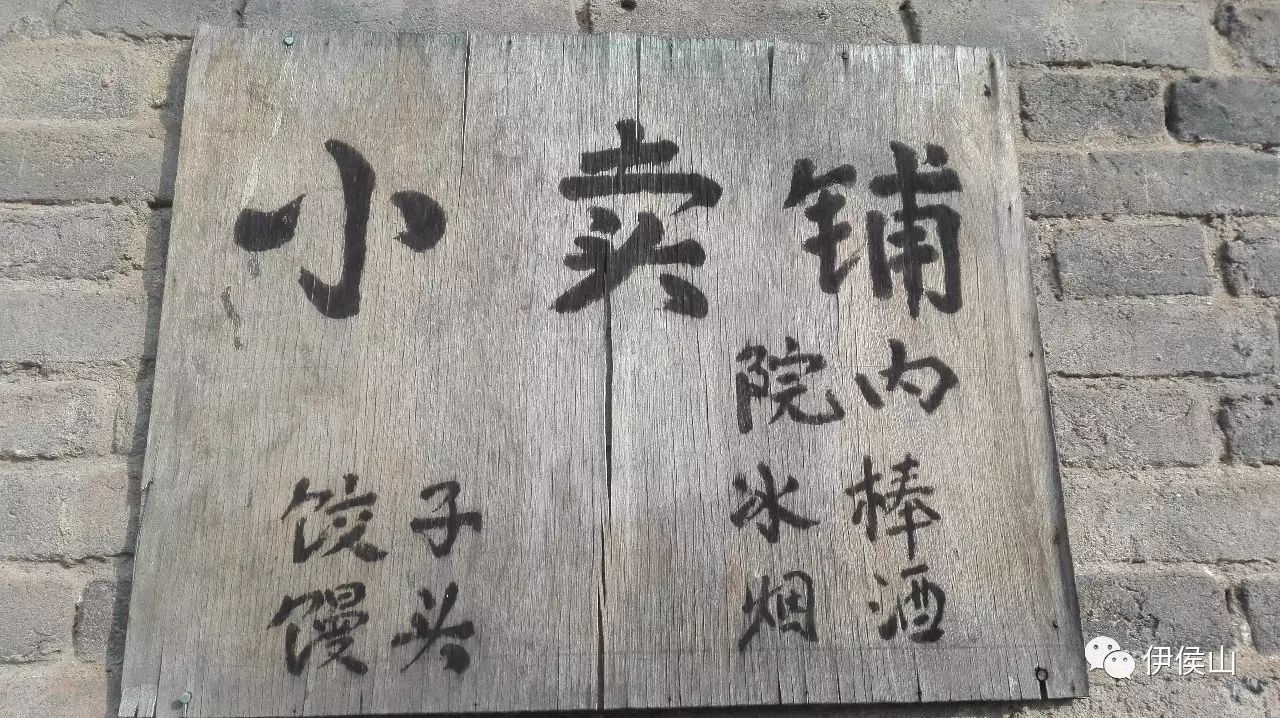 小卖铺
院内
饺子
馒头
冰棒
烟酒
伊侯山